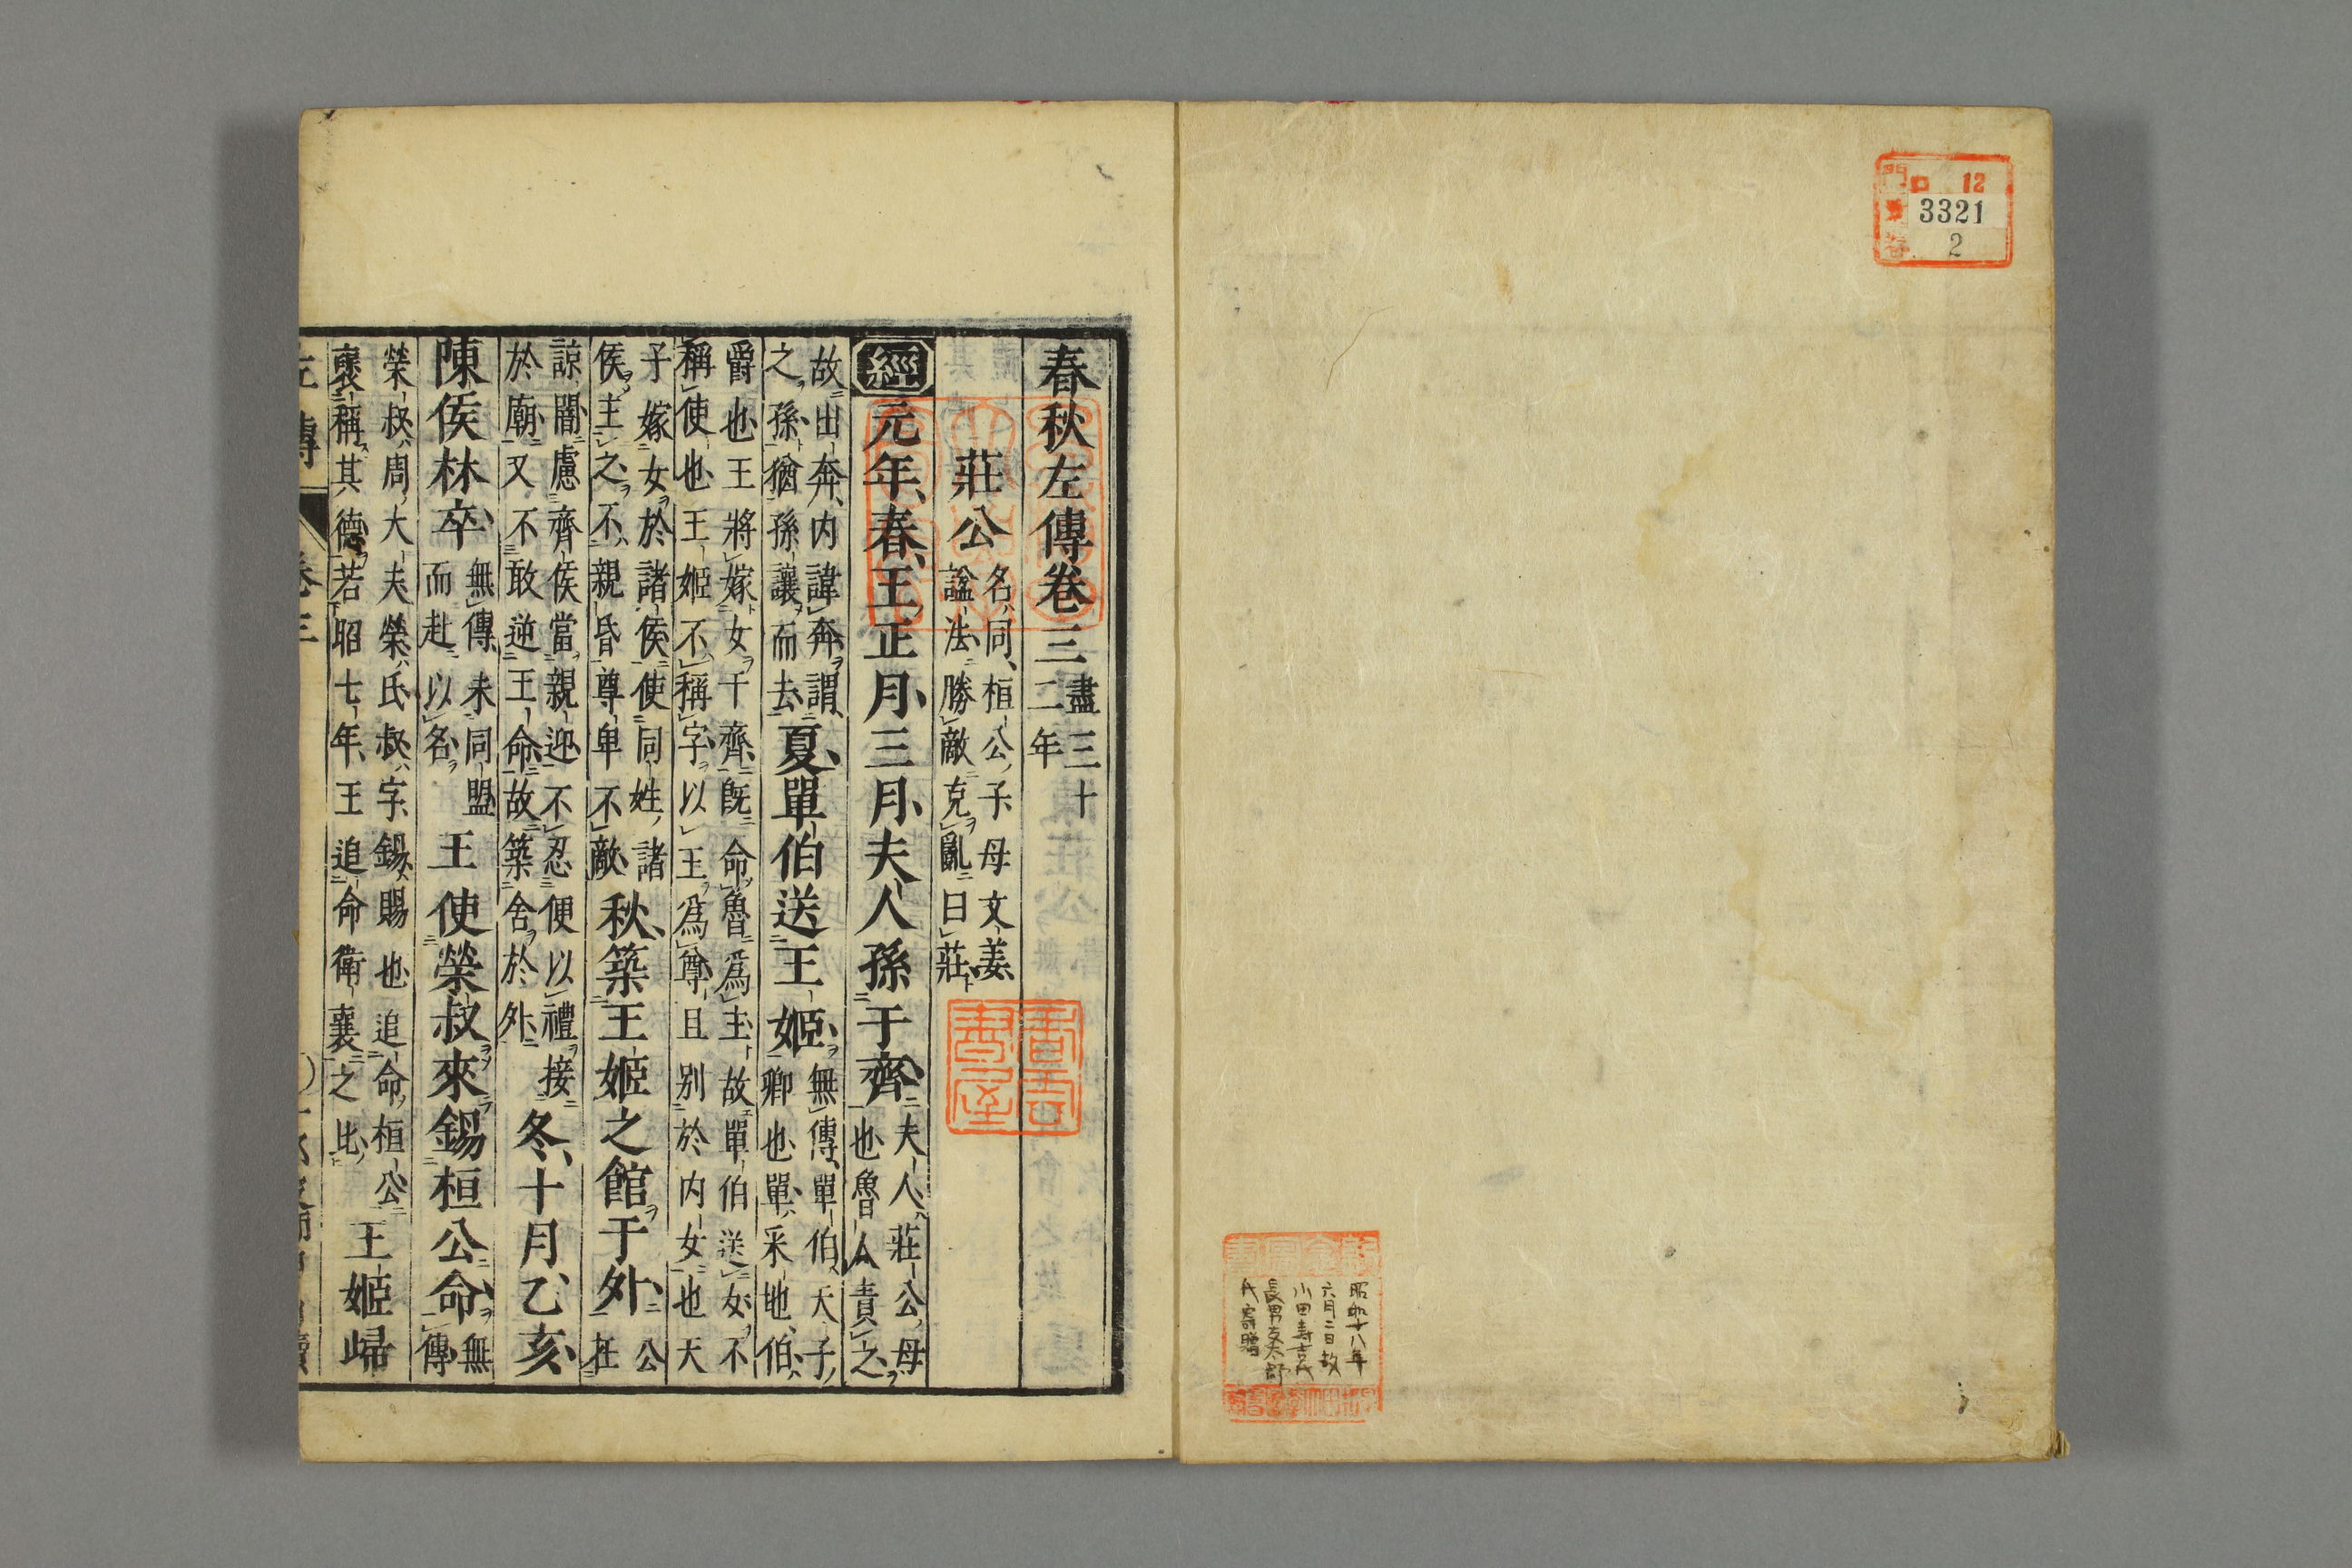 口 12
3321
2
昭和十八年
六月二日故
小田寿吉氏
長男友太郎
氏寄贈
春秋左傳卷三 盡三十二年
莊公 名同桓公子母文姜謚法勝敵克亂曰莊
經元年春王正月三月夫人孫于齊 夫人莊公母也魯人責之
故出奔内諱奔謂之孫猶孫讓而去 夏單伯送王姬 無傳單伯天子卿也單采地伯
爵也王將嫁女于齊既命魯爲主故單伯送女不稱使也王姬不稱字以王爲尊且别於内女也天
子嫁女於諸侯使同姓諸侯主之不親昏尊卑不敵 秋築王姬之館于外 公在
諒闇慮齊侯當親迎不忍便以禮接於廟又不敢逆王命故築舍於外 冬十月乙亥
陳侯林卒 無傳未同盟而赴以名 王使榮叔來錫桓公命 無傳
榮叔周大夫榮氏叔字錫賜也追命桓公襃稱其德若昭七年王追命衛襄之比 王姬歸
左傳 卷三